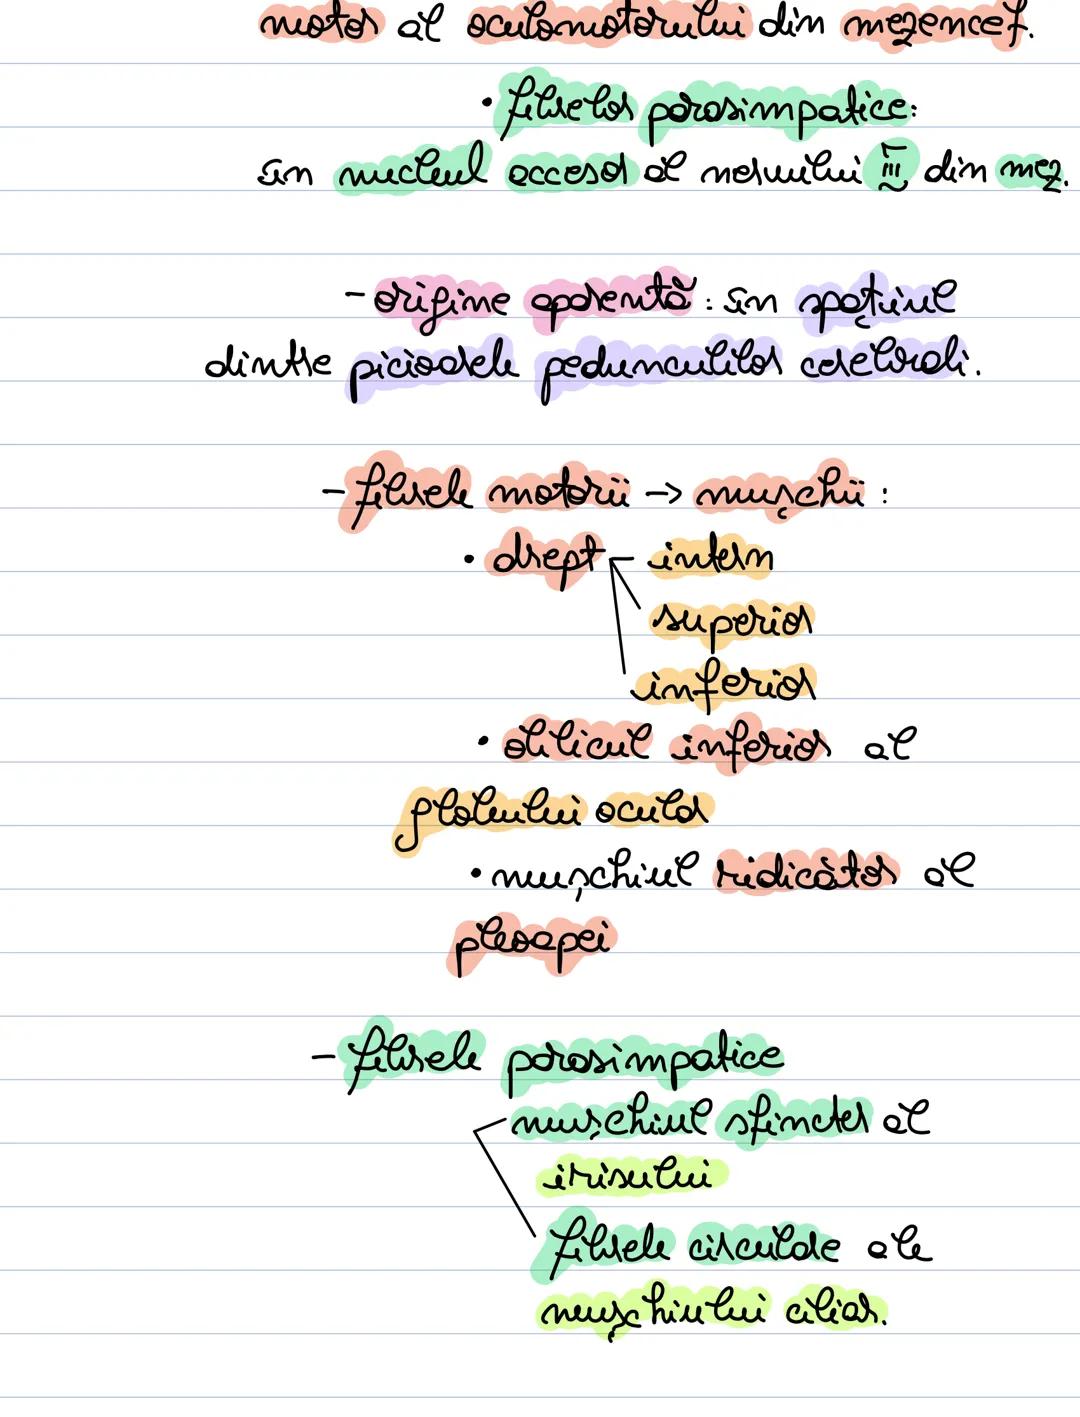 motor al oculomotorului din mezencef.
• fibrelor parasimpatice:
în nucleul accesor al nervului III din mez.
- origine aparentă: în spațiul
dintre picioarele pedunculilor cerebrali.
- fibrele motorii -> mușchii:
• drept intern
superior
inferior
• oblicul inferior al
globului ocular
• mușchiul ridicător al
pleoapei
- fibrele parasimpatice
mușchiul sfincter al
irisului
fibrele circulare ale
mușchiului ciliar.